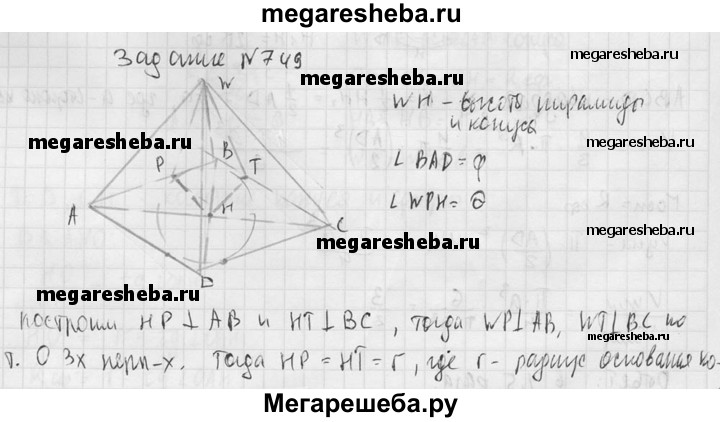 megaresheba.ru
Задание №749
megaresheba.ru
W
megaresheba.ru
WH - высота пирамиды
и конуса
megaresheba.ru
P
B
T
∠BAD = φ
A
H
∠WPH = θ
C
megaresheba.ru
megaresheba.ru
D
megaresheba.ru
построим HP⊥AB и HT⊥BC, тогда WP⊥AB, WT⊥BC по
megaresheba.ru
т. О 3х перп-х. Тогда HP = HT = r, где r - радиус основания ко-
megaresheba.ru
Мегарешеба.ру